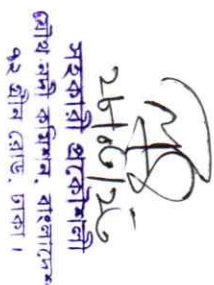 সহকারী প্রকৌশলী
যৌথ নদী কমিশন, বাংলাদেশ
৭২ গ্রীন রোড, ঢাকা।